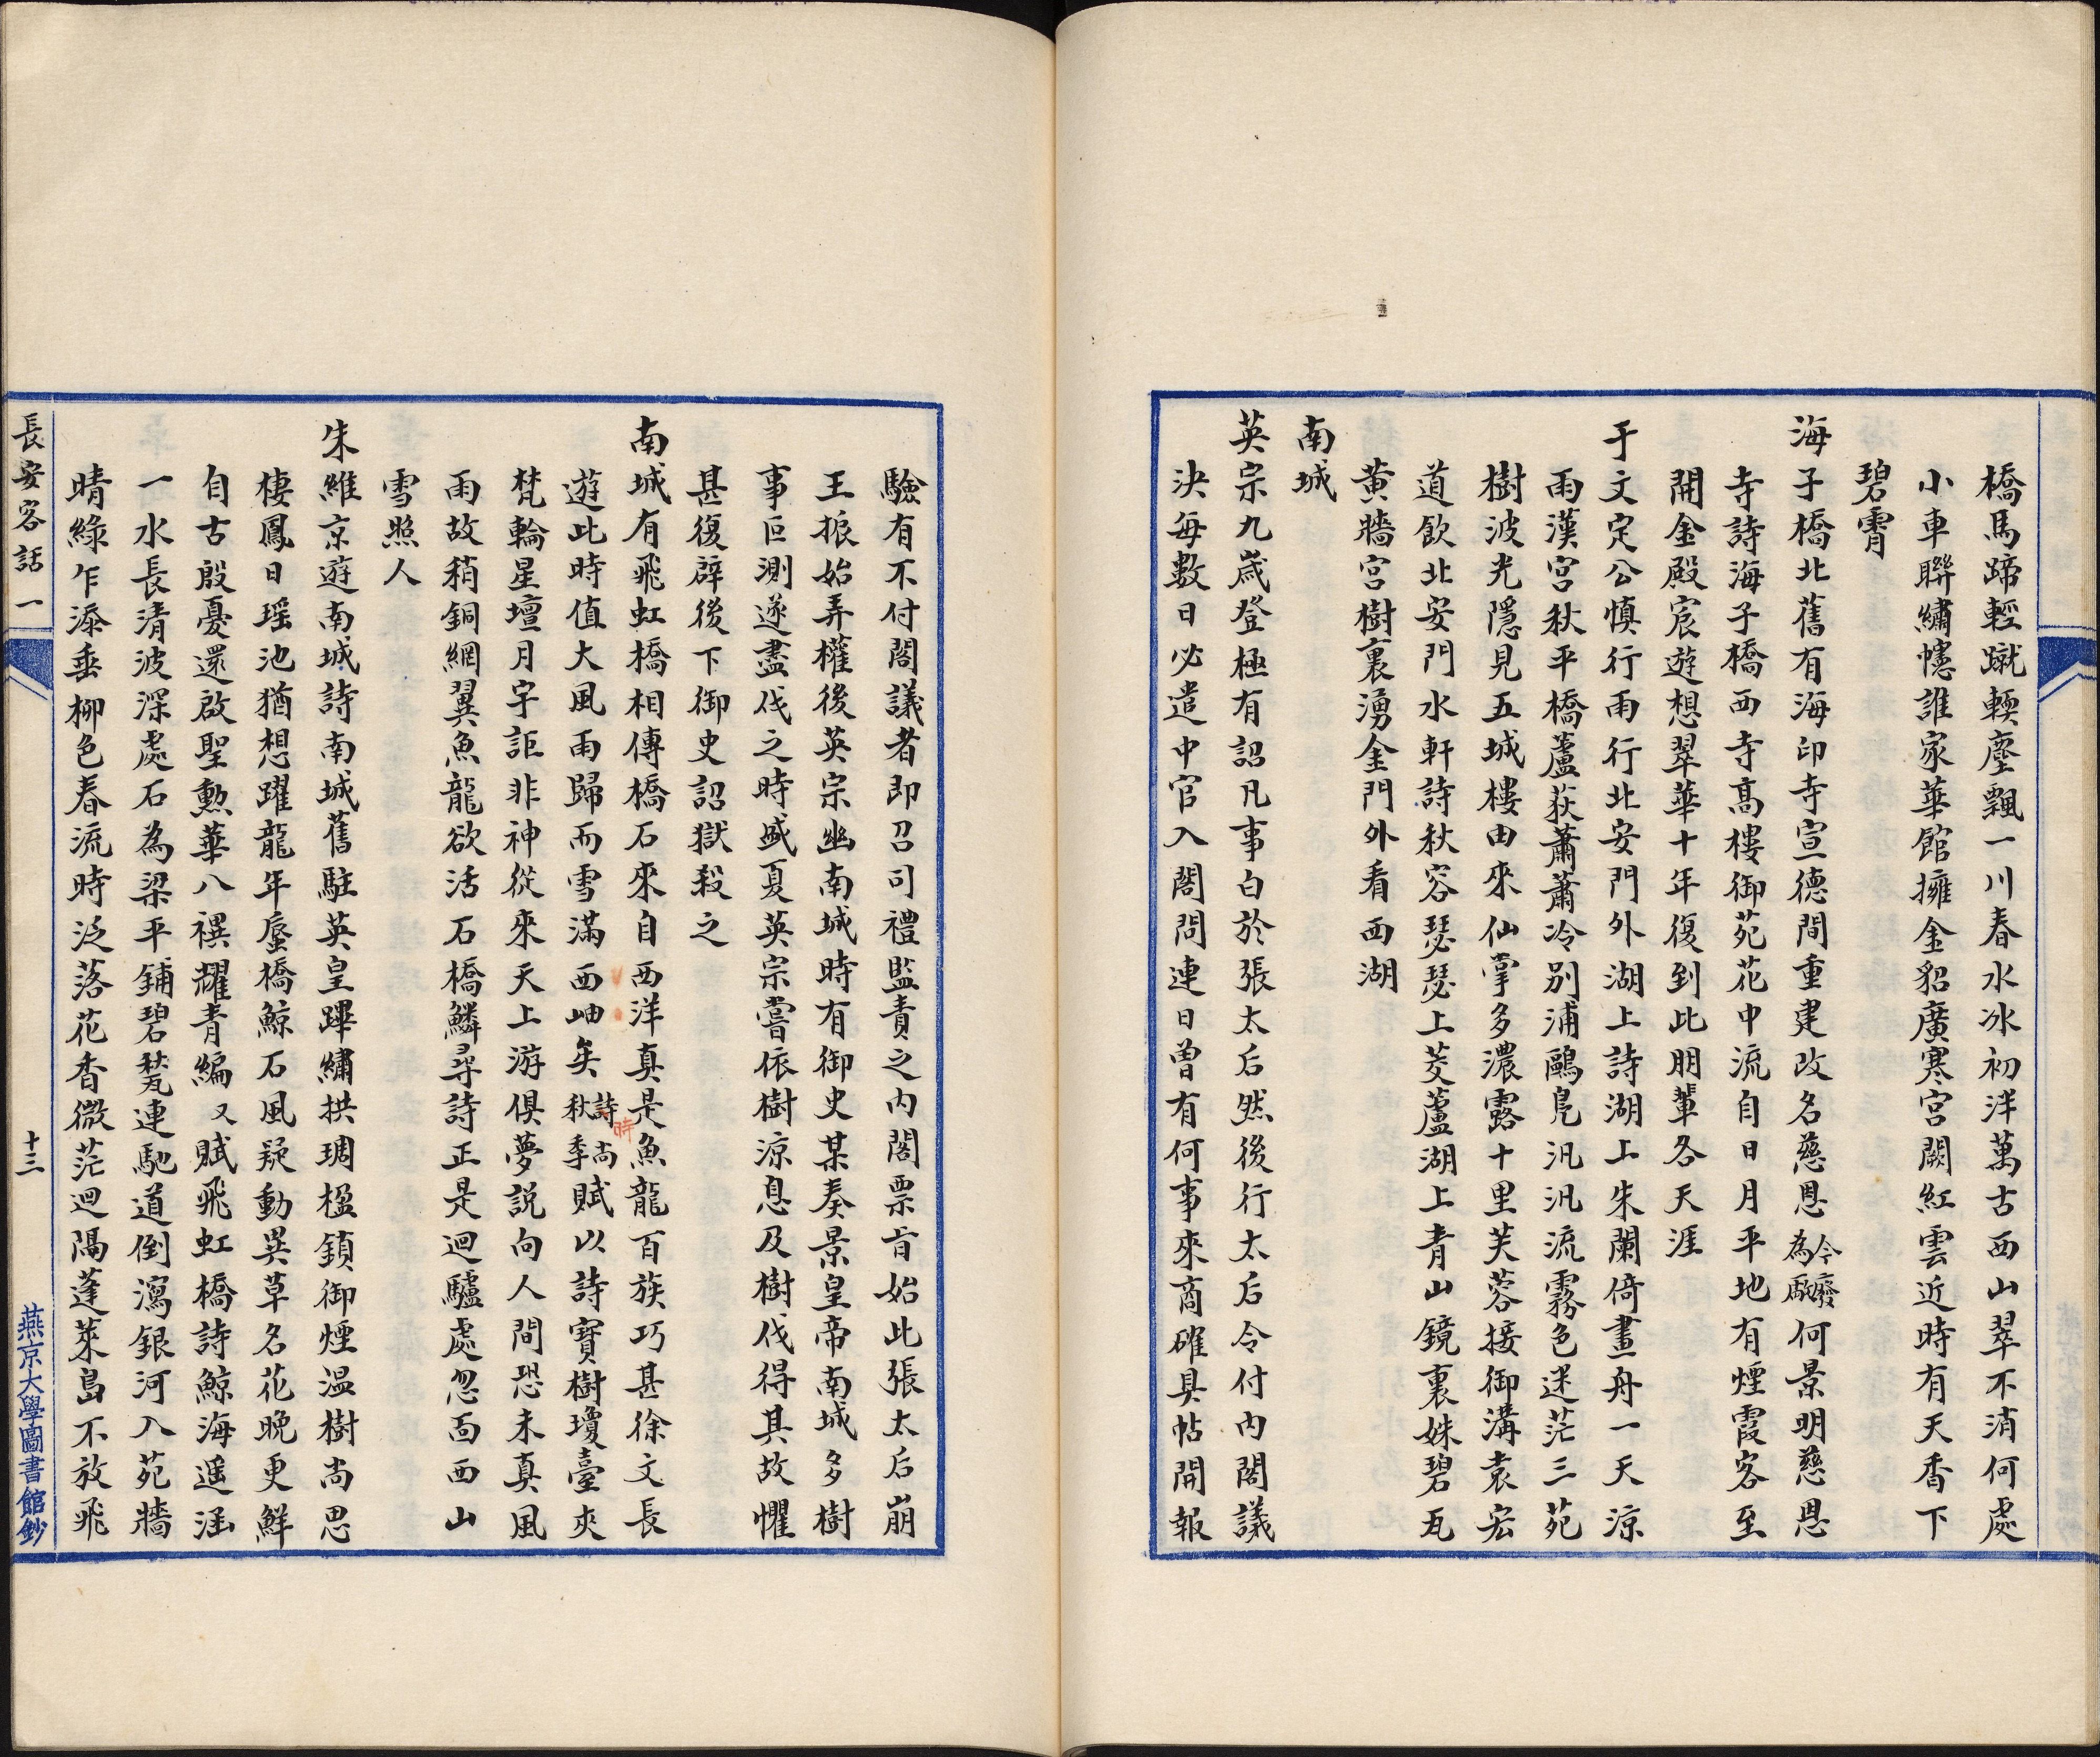 橋馬蹄輕蹴輭塵飄一川春水冰初泮萬古西山翠不消何處
小車聯繡幰誰家華館擁金貂廣寒宮闕紅雲近時有天香下
碧霄
海子橋北舊有海印寺宣德間重建改名慈恩今廢為厰何景明慈恩
寺詩海子橋西寺高樓御苑花中流自日月平地有煙霞客至
開金殿宸遊想翠華十年復到此朋輩各天涯
于文定公慎行雨行北安門外湖上詩湖上朱闌倚畫舟一天涼
雨漢宮秋平橋蘆荻蕭蕭冷別浦鷗鳧汎汎流霧色迷茫三苑
樹波光隱見五城樓由來仙掌多濃露十里芙蓉接御溝袁宏
道飲北安門水軒詩秋容瑟瑟上菱蘆湖上青山鏡裏姝碧瓦
黄牆宮樹裏湧金門外看西湖
南城
英宗九歲登極有詔凡事白於張太后然後行太后令付內閣議
決每數日必遣中官入閣問連日曾有何事來商確具帖開報
驗有不付閣議者即召司禮監責之內閣票旨始此張太后崩
王振始弄權後英宗幽南城時有御史某奏景皇帝南城多樹
事叵測遂盡伐之時盛夏英宗嘗依樹涼息及樹伐得其故懼
甚復辟後下御史詔獄殺之
南城有飛虹橋相傳橋石來自西洋真是魚龍百族巧甚徐文長
遊此時值大風雨歸而雪滿西岫矣詩時尚秋季賦以詩寶樹瓊臺夾
梵輪星壇月宇詎非神從來天上游俱夢説向人間恐未真風
雨故稍銅網翼魚龍欲活石橋鱗尋詩正是迴驢處忽面西山
雪照人
朱維京遊南城詩南城舊駐英皇蹕繡拱琱楹鎖御煙温樹尚思
棲鳳日瑶池猶想躍龍年蜃橋鯨石風疑動異草名花晚更鮮
自古殷憂還啟聖勲華八襈耀青編又賦飛虹橋詩鯨海遥涵
一水長清波深處石為梁平鋪碧甃連馳道倒瀉銀河入苑牆
晴綠乍添垂柳色春流時泛落花香微茫迴隔蓬萊島不放飛
長安客話 一
十三
燕京大學圖書館鈔